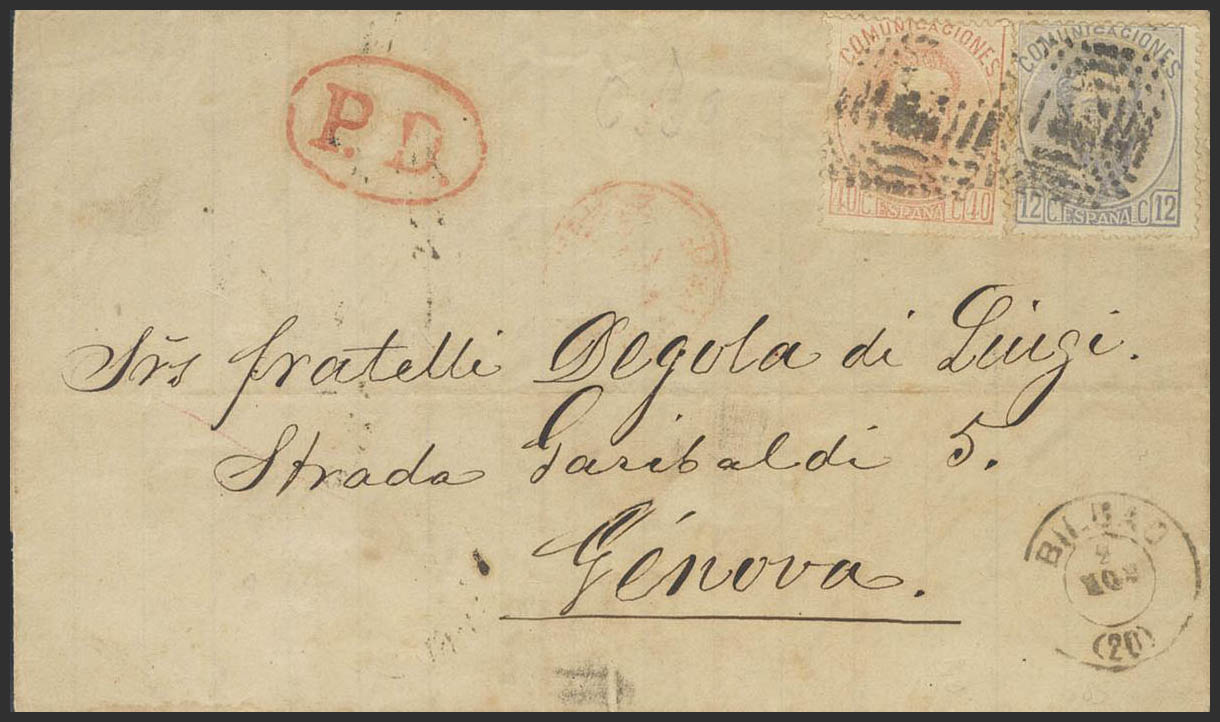 P.D.
COMUNICACIONES COMUNICACIONES
40 C ESPAÑA C 40 12 C ESPAÑA C 12
Srs fratelli Degola di Luigi.
Strada Garibaldi 5.
Génova.
BILBAO
2
NOV
(20)